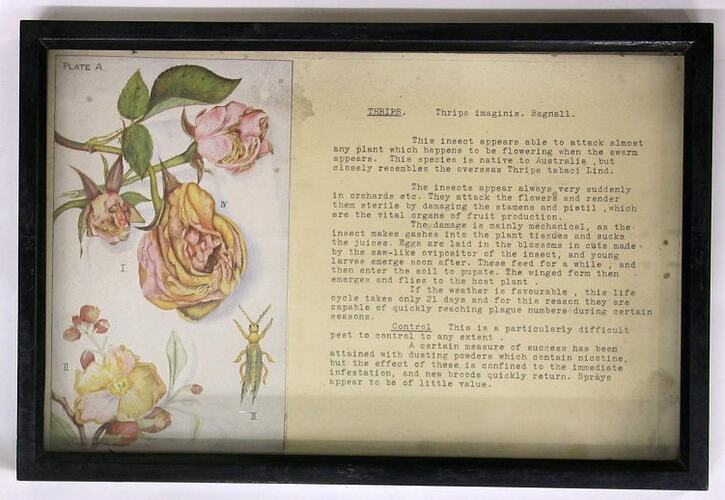 PLATE A
IV
I
II
III
THRIPS. Thrips imaginis. Bagnall.
This insect appears able to attack almost
any plant which happens to be flowering when the swarm
appears. This species is native to Australia ,but
closely resembles the overseas Thrips tabaci Lind.
The insects appear always very suddenly
in orchards etc. They attack the flowers and render
them sterile by damaging the stamens and pistil ,which
are the vital organs of fruit production.
The damage is mainly mechanical, as the
insect makes gashes into the plant tissues and sucks
the juices. Eggs are laid in the blossoms in cuts made
by the saw-like ovipositor of the insect, and young
larvae emerge soon after. These feed for a while , and
then enter the soil to pupate. The winged form then
emerges and flies to the host plant .
If the weather is favourable , this life
cycle takes only 21 days and for this reason they are
capable of quickly reaching plague numbers during certain
seasons.
Control This is a particularly difficult
pest to control to any extent .
A certain measure of success has been
attained with dusting powders which contain nicotine,
but the effect of these is confined to the immediate
infestation, and new broods quickly return. Sprays
appear to be of little value.